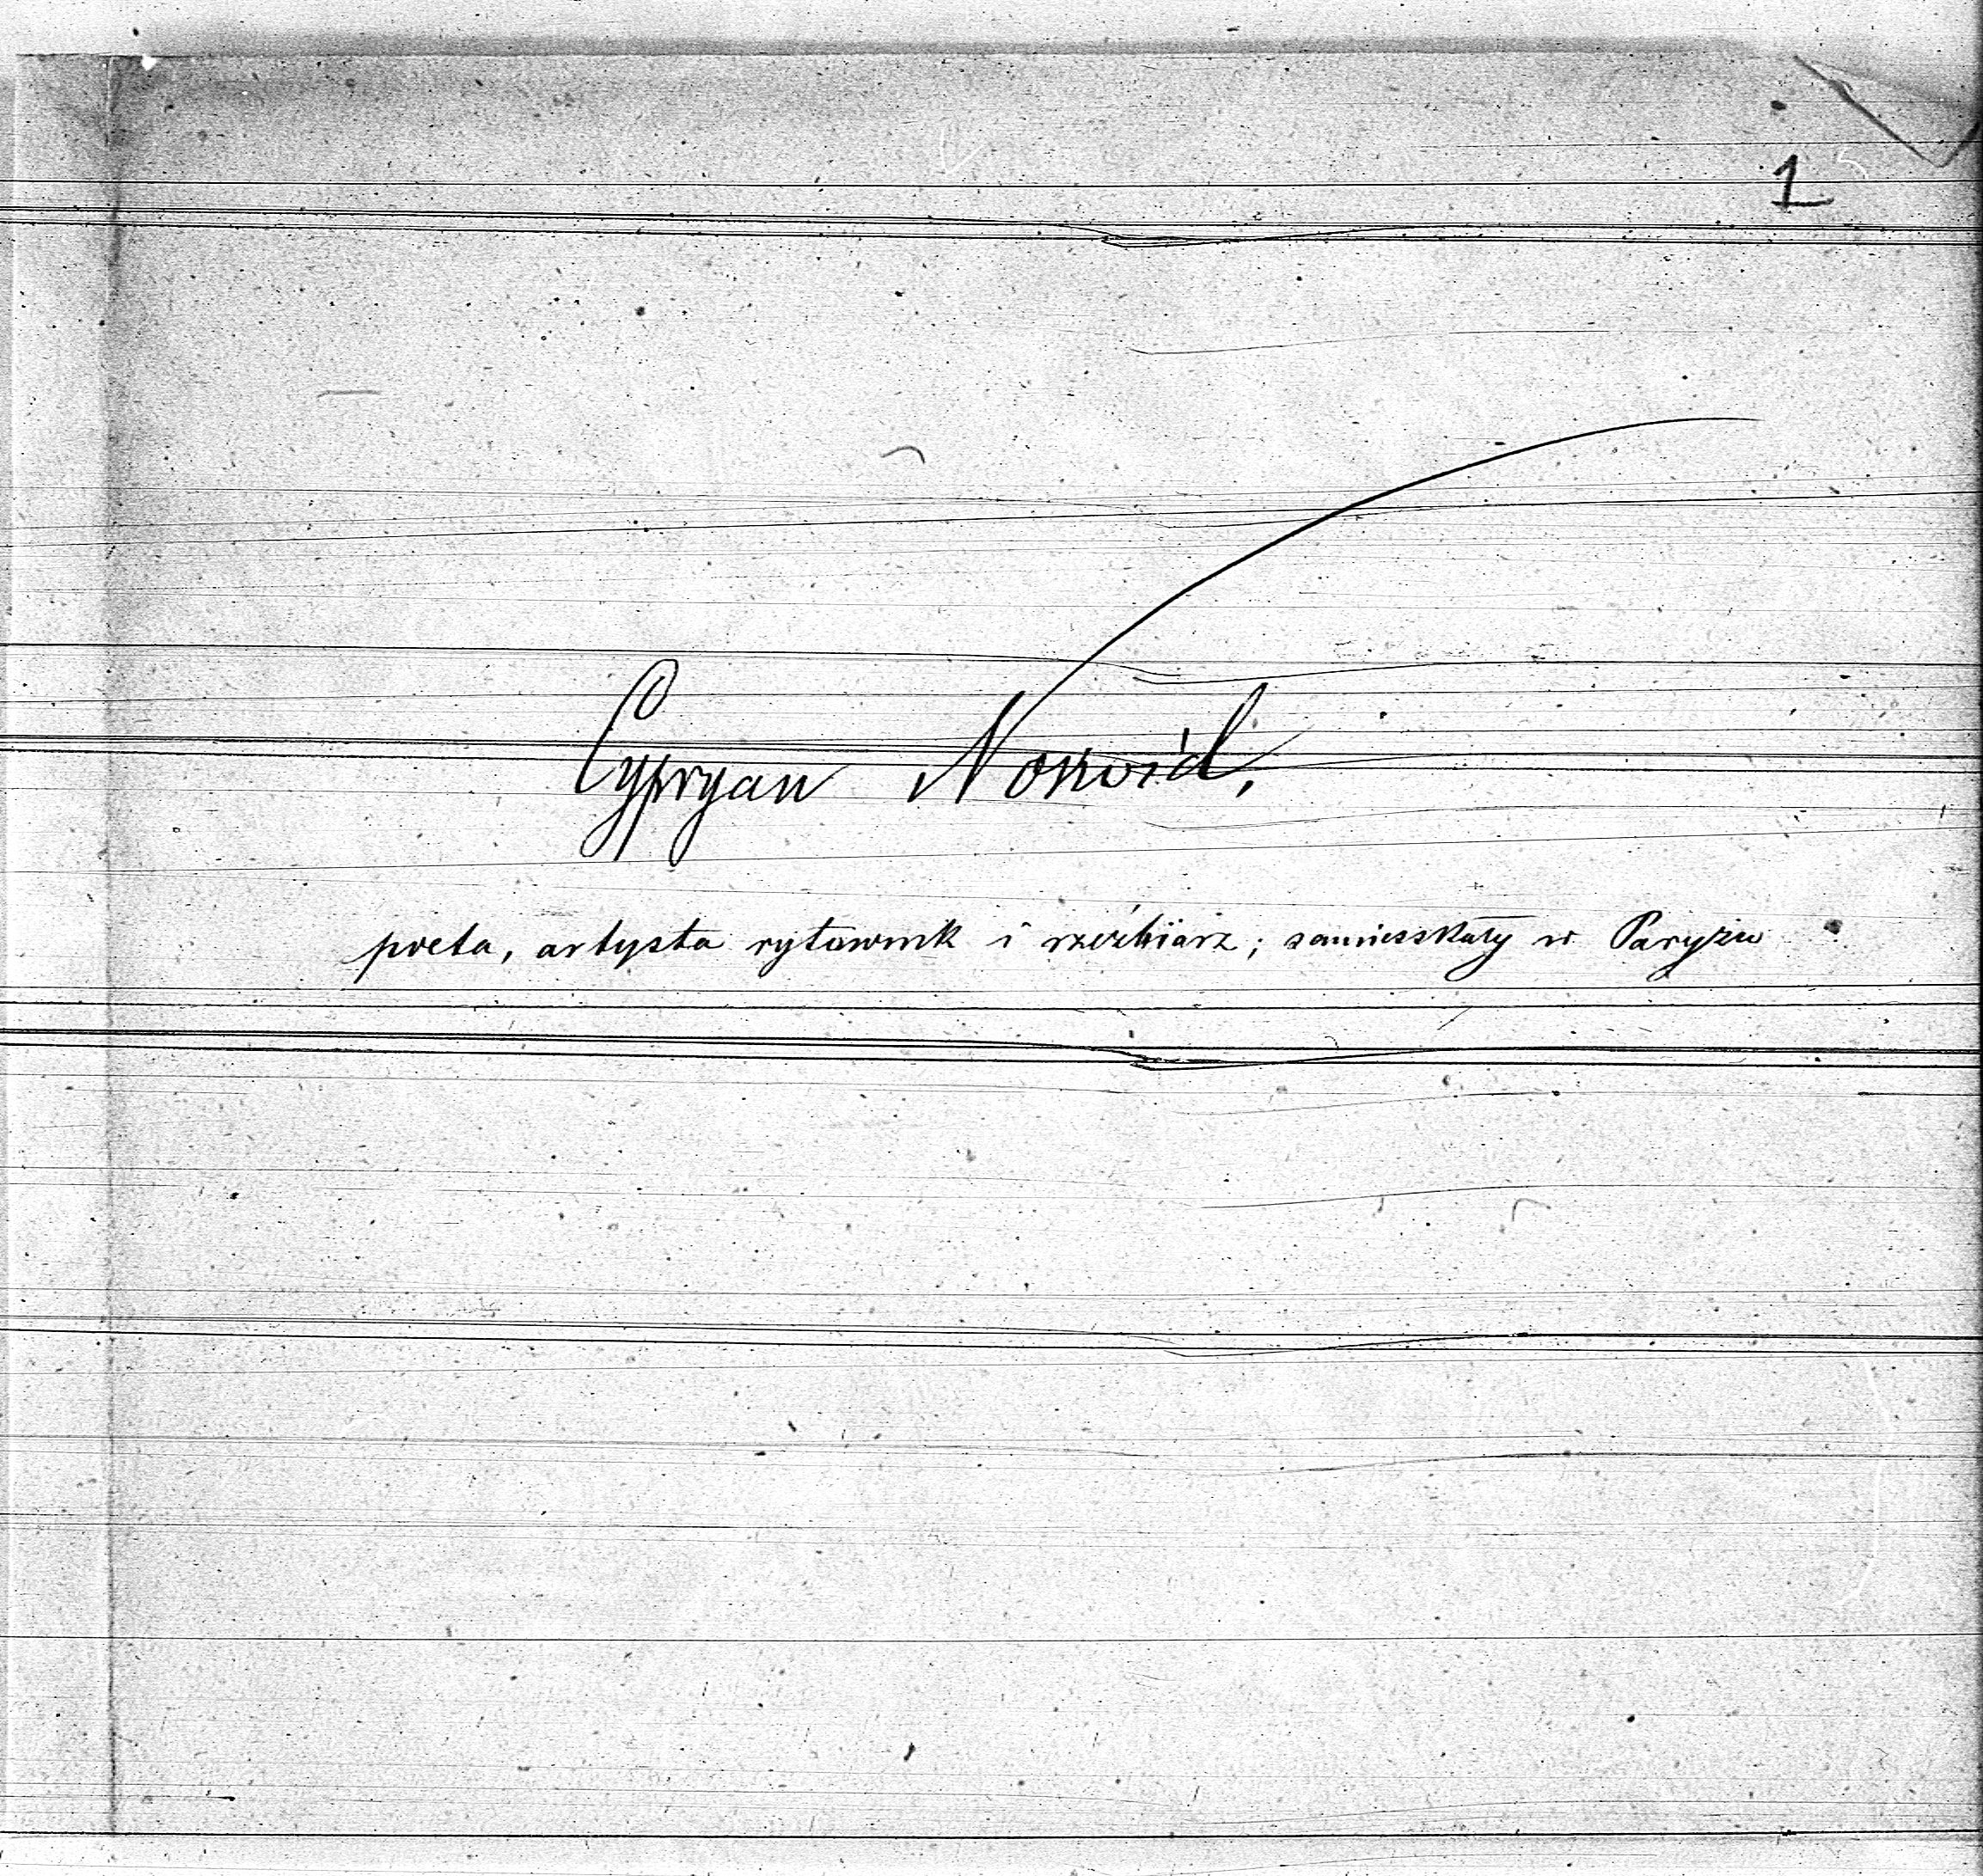 1
Cypryan Norwid,
poeta, artysta rytownik i rzeźbiarz; zamieszkały w Paryżu